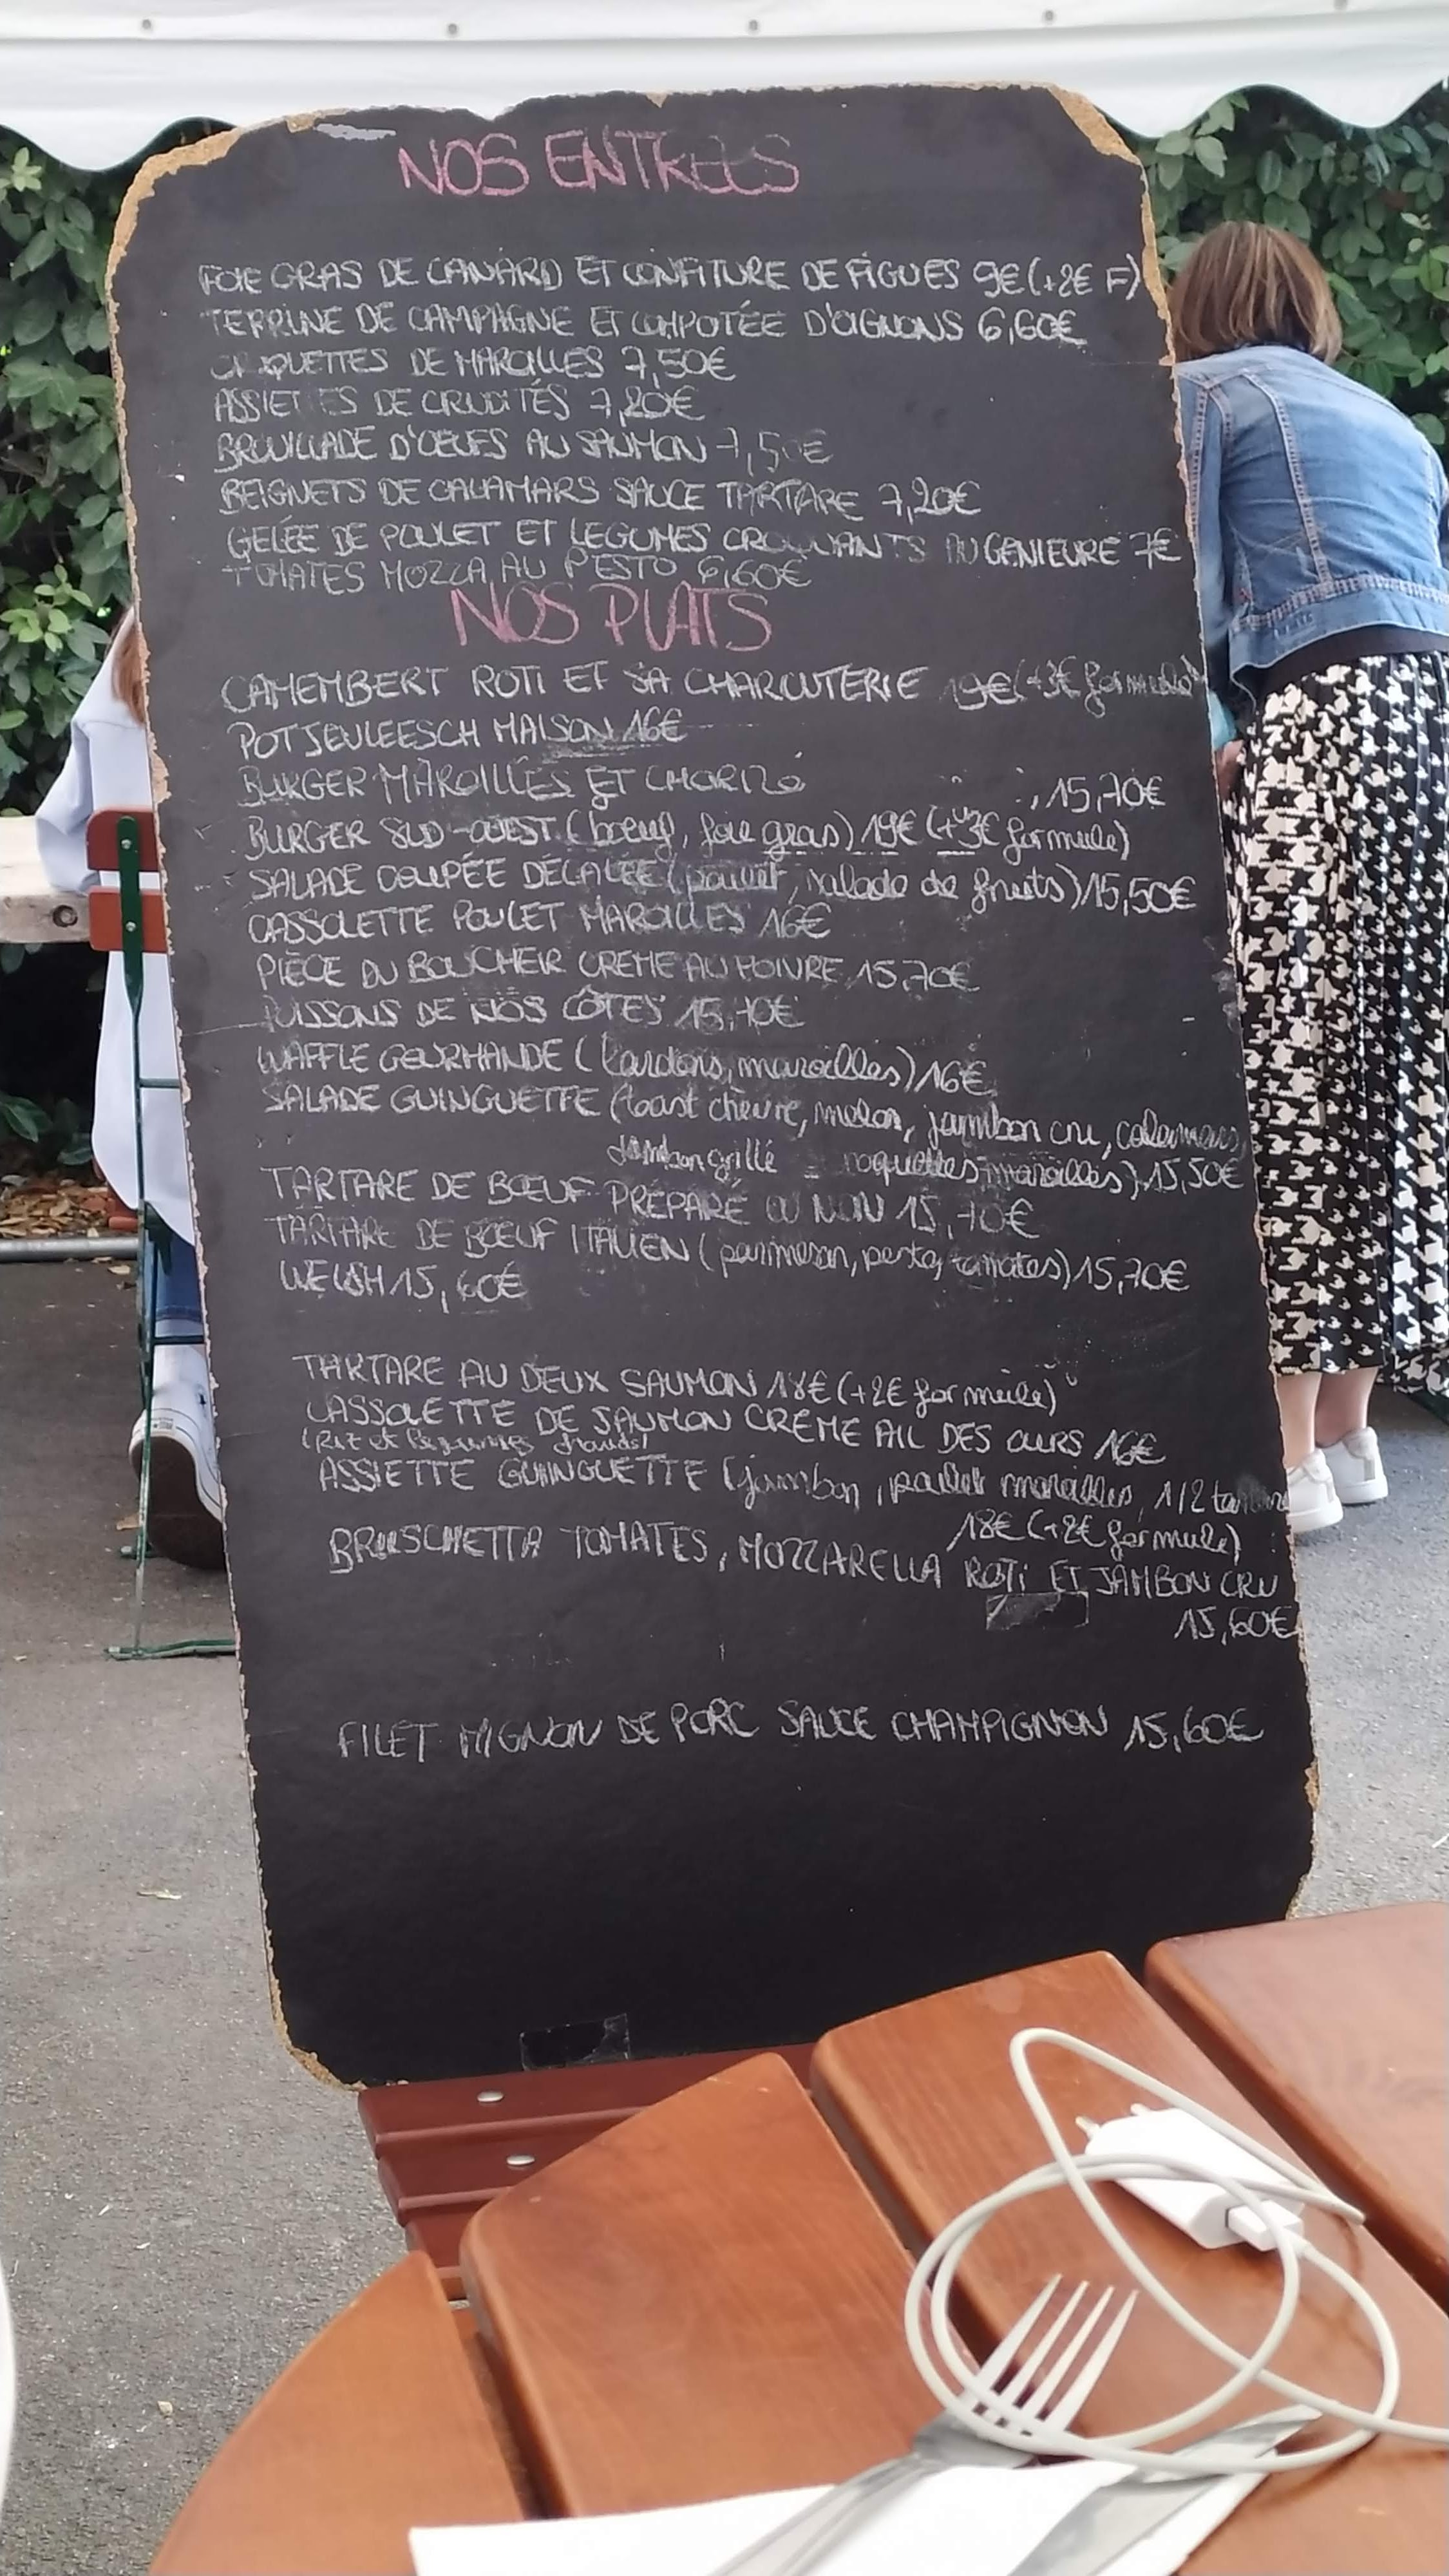 NOS ENTREES
FOIE GRAS DE CANARD ET CONFITURE DE FIGUES 9€ (+2€ F)
TERRINE DE CAMPAGNE ET COMPOTÉE D'OIGNONS 6,60€
CROQUETTES DE MAROILLES 7,50€
ASSIETTES DE CRUDITÉS 7,20€
BROUILLADE D'OEUFS AU SAUMON 7,50€
BEIGNETS DE CALAMARS SAUCE TARTARE 7,20€
GELÉE DE POULET ET LEGUMES CROQUANTS AU GENIEVRE 7€
TOMATES MOZZA AU PESTO 6,60€
NOS PLATS
CAMEMBERT ROTI ET SA CHARCUTERIE 19€ (+3€ formule)
POTJEVLEESCH MAISON 16€
BURGER MAROILLES ET CHORIZO 15,70€
BURGER SUD-OUEST (boeuf, foie gras) 19€ (+3€ formule)
SALADE COUPÉE DÉCALÉE (poulet, salade de fruits) 15,50€
CASSOLETTE POULET MAROILLES 16€
PIÈCE DU BOUCHER CREME AU POIVRE 15,70€
POISSONS DE NOS CÔTES 15,70€
WAFFLE GOURMANDE (lardons, maroilles) 16€
SALADE GUINGUETTE (toast chevre, melon, jambon cru, calamars,
Jambon grillé roquettes, maroilles) 15,50€
TARTARE DE BŒUF PRÉPARÉ OU NON 15,70€
TARTARE DE BŒUF ITALIEN (parmesan, pesto, tomates) 15,70€
WELSH 15,60€
TARTARE AU DEUX SAUMON 18€ (+2€ formule)
CASSOLETTE DE SAUMON CREME AIL DES OURS 16€
(Riz et légumes chauds)
ASSIETTE GUINGUETTE (jambon, poulet maroilles, 1/2 tartare
18€ (+2€ formule)
BRUSCHETTA TOMATES, MOZZARELLA ROTI ET JAMBON CRU
15,60€
FILET MIGNON DE PORC SAUCE CHAMPIGNON 15,60€